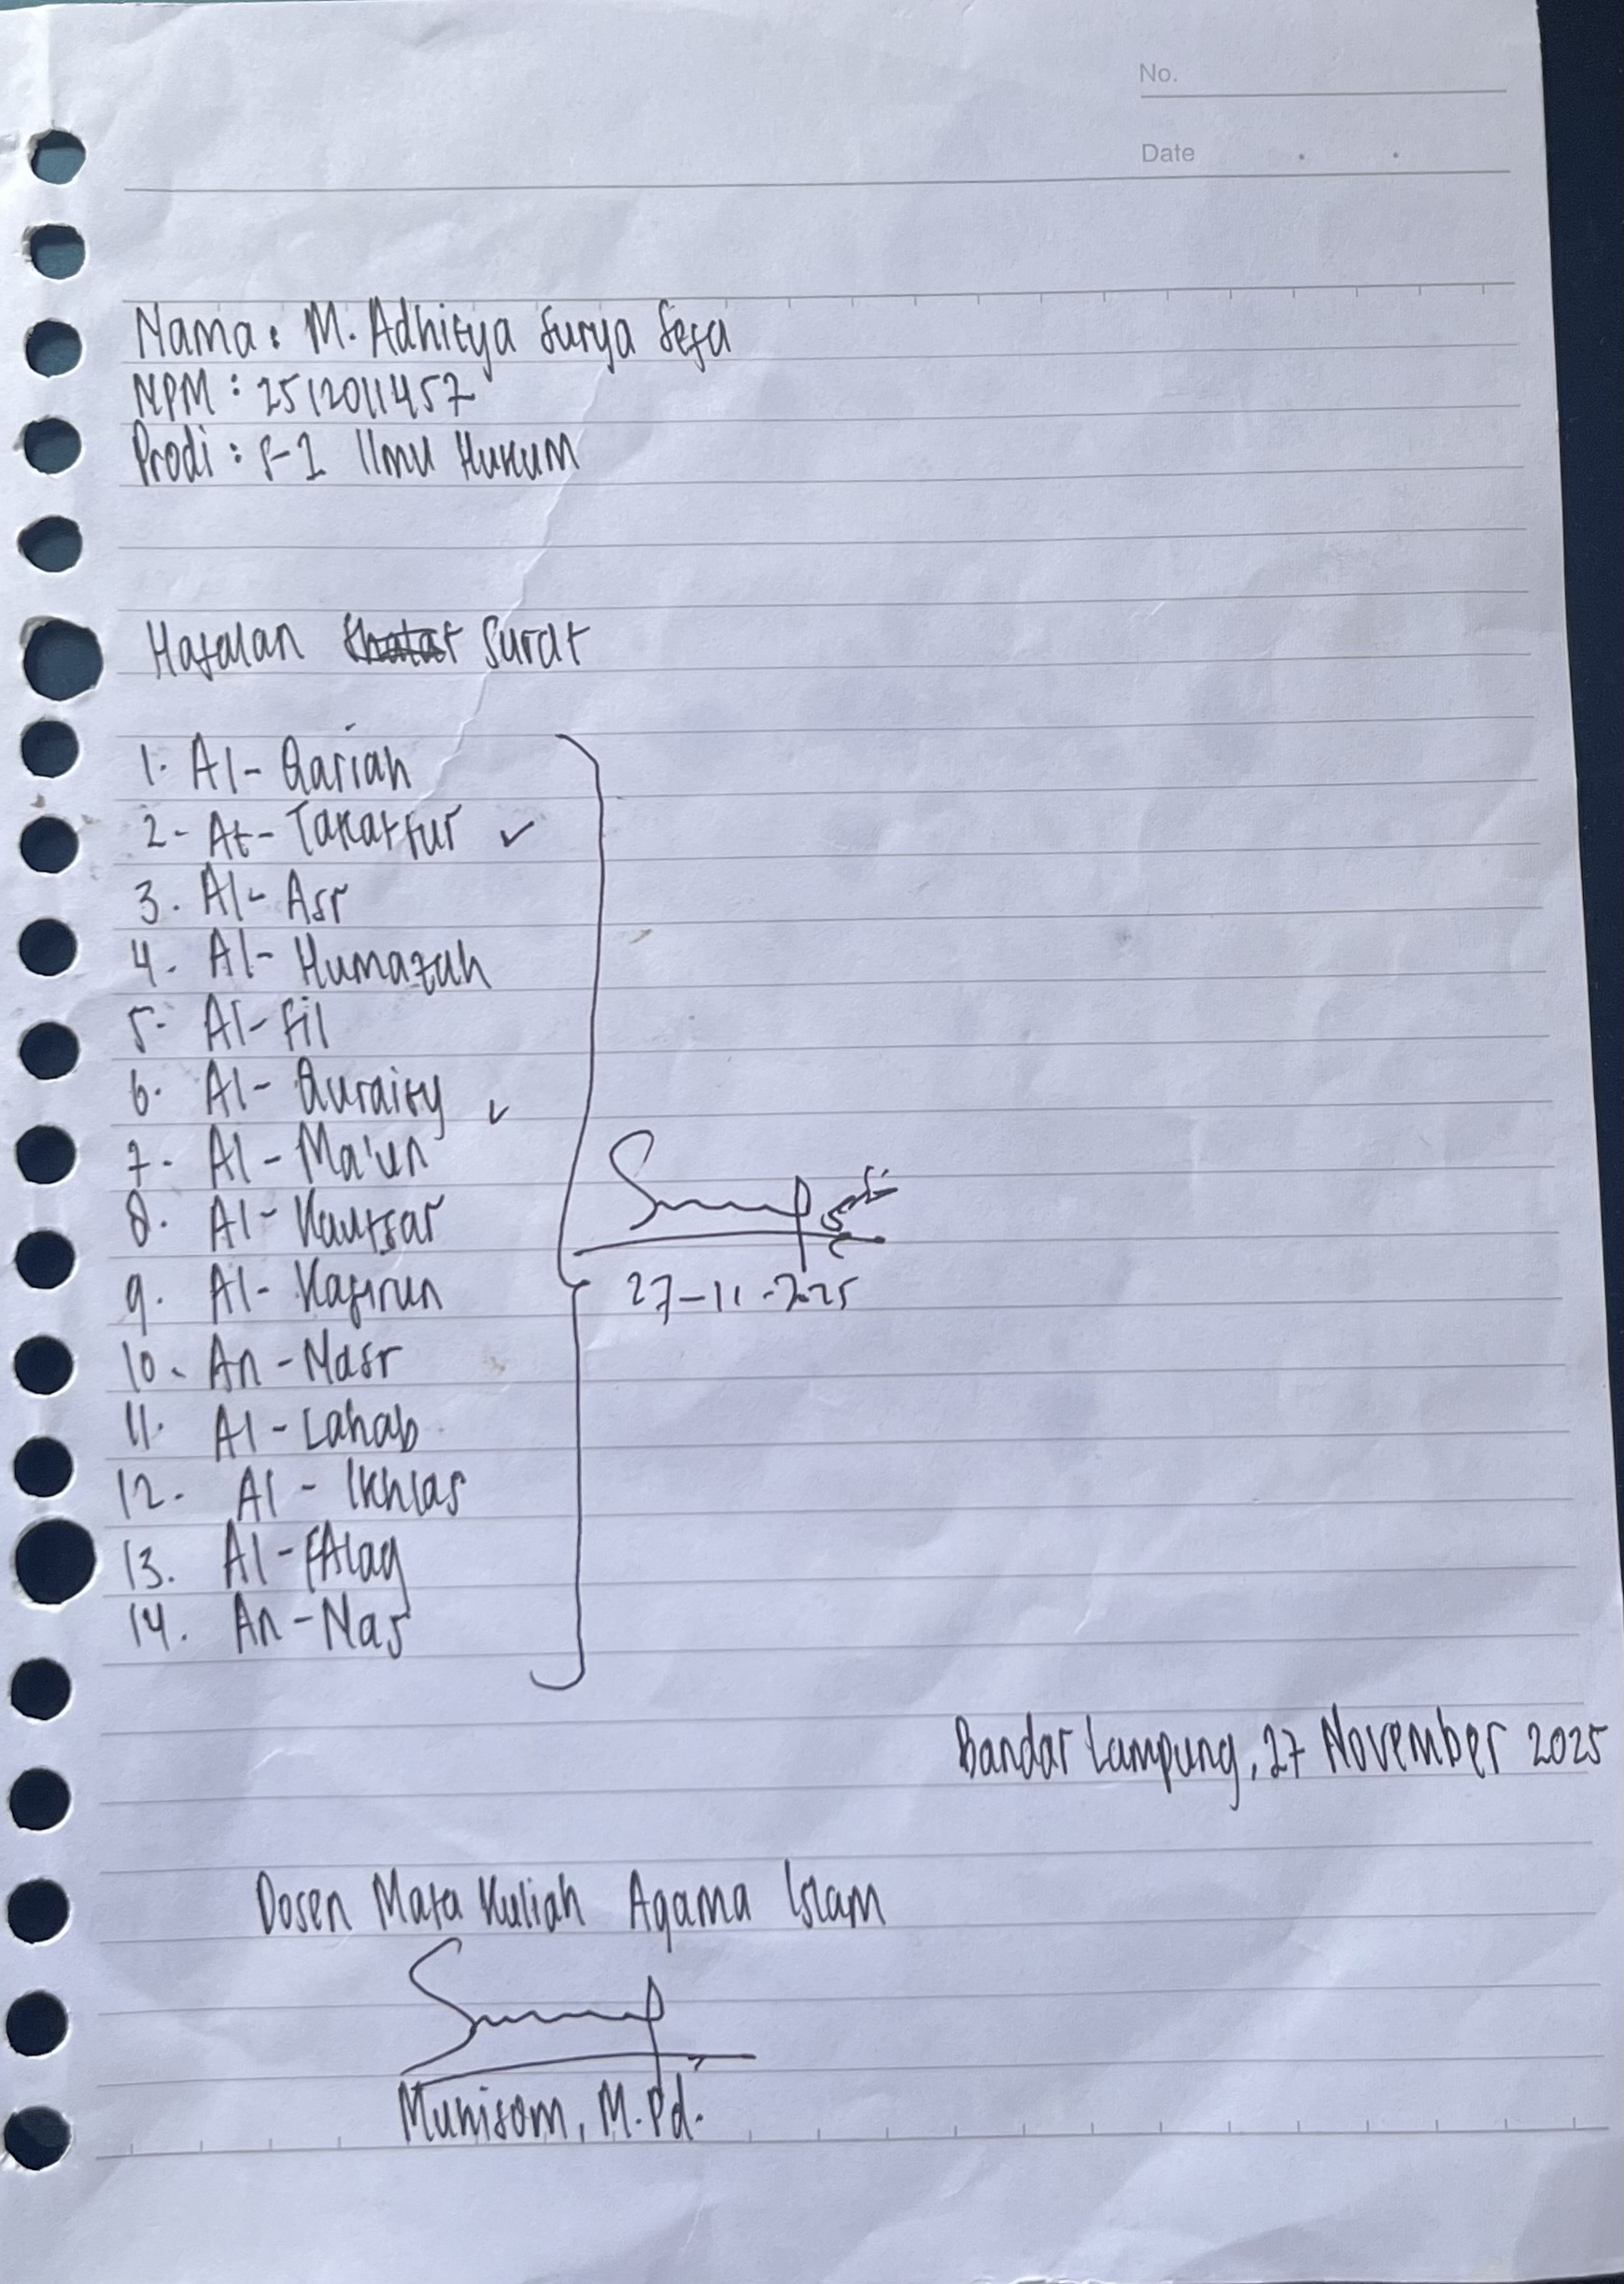 No.
Date
Nama : M. Adhitya Surya Sefa
NPM : 2512011457
Prodi : S-1 Ilmu Hukum
Hafalan Surat
1. Al- Qariah
2. At- Takattur ✓
3. Al- Asr
4. Al- Humazah
5. Al- Fil
6. Al- Quraisy ✓
7. Al- Ma'un
8. Al- Kautsar
9. Al- Kafirun
10. An- Nasr
11. Al- Lahab
12. Al- Ikhlas
13. Al- FAlaq
14. An- Nas
27-11-2025
Bandar Lampung, 27 November 2025
Dosen Mata Kuliah Agama Islam
Munisom, M.Pd.